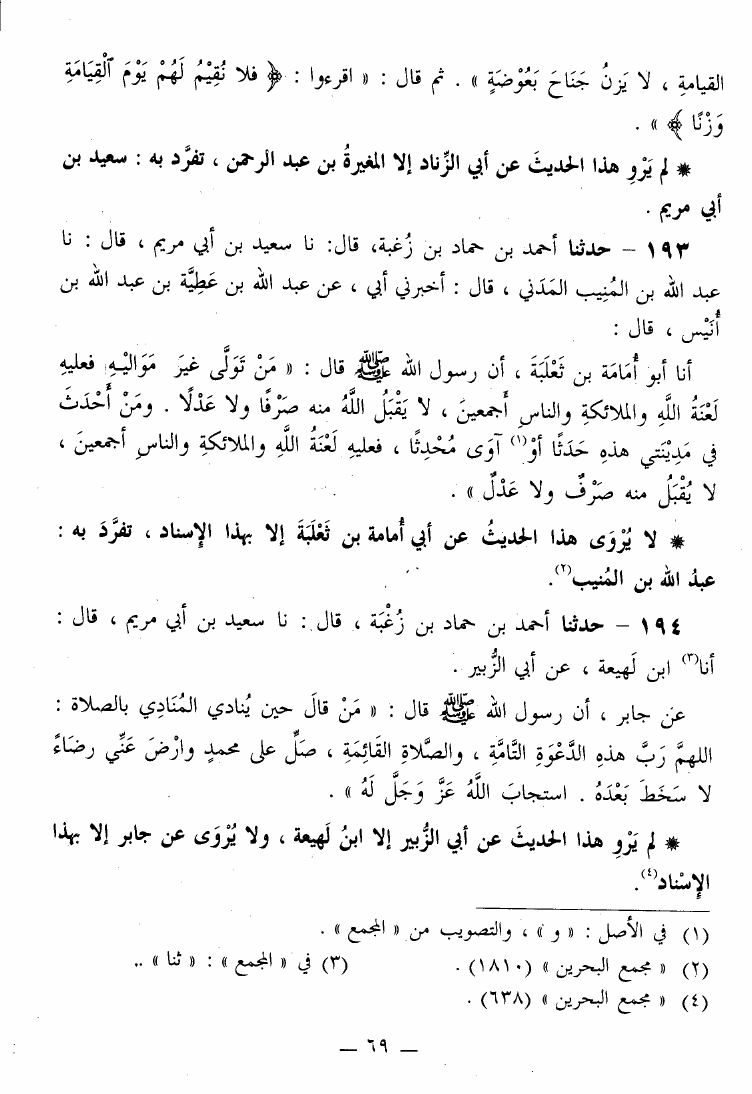 القيامةِ ، لا يَزنُ جَنَاحَ بَعُوْضَةٍ » . ثم قال : « اقرءوا : ﴿ فلا نُقِيْمُ لَهُمْ يَوْمَ الْقِيَامَةِ
وَزْنًا ﴾ » .
* لم يَرْوِ هذا الحديثَ عن أبي الزِّناد إلا المغيرةُ بن عبد الرحمن ، تفرَّد به : سعيد بن
أبي مريم .
١٩٣ – حدثنا أحمد بن حماد بن زُغبة، قال: نا سعيد بن أبي مريم ، قال : نا
عبد الله بن المُنِيب المَدَني ، قال : أخبرني أبي ، عن عبد الله بن عَطِيَّة بن عبد الله بن
أُنَيْس ، قال :
أنا أبو أُمَامَة بن ثَعْلَبَةَ ، أن رسول الله ﷺ قال : « مَنْ تَوَلَّى غيرَ مَوَاليْـهِ فعليهِ
لَعْنَةُ اللَّهِ والملائكةِ والناسِ أَجمعينَ ، لا يَقْبَلُ اللَّهُ منه صَرْفًا ولا عَدْلًا . ومَنْ أَحْدَثَ
في مَدِيْنَتي هذهِ حَدَثًا أوْ(١) آوَى مُحْدِثًا ، فعليهِ لَعْنَةُ اللَّهِ والملائكةِ والناسِ أجمعينَ ،
لا يُقْبَلُ منه صَرْفٌ ولا عَدْلٌ » .
* لا يُرْوَى هذا الحديثُ عن أبي أُمامة بن ثَعْلَبَةَ إلا بهذا الإسناد ، تفرَّدَ به :
عبدُ الله بن المُنيب(٢).
١٩٤ – حدثنا أحمد بن حماد بن زُغْبَة ، قال : نا سعيد بن أبي مريم ، قال :
أنا(٣) ابن لَهيعة ، عن أبي الزُّبير .
عن جابر ، أن رسول الله ﷺ قال : « مَنْ قالَ حين يُنادي المُنَادِي بالصلاة :
اللهمَّ رَبَّ هذهِ الدَّعْوَةِ التَّامَّةِ ، والصَّلاةِ القَائِمَةِ ، صَلِّ على محمدٍ وارْضَ عَنِّي رضَاءً
لا سَخَطَ بَعْدَهُ . استجابَ اللَّهُ عَزَّ وَجَلَّ لَهُ » .
* لم يَرْوِ هذا الحديثَ عن أبي الزُّبير إلا ابنُ لَهيعة ، ولا يُرْوَى عن جابر إلا بهذا
الإسْناد(٤).
(١) في الأصل : « و » ، والتصويب من « المجمع » .
(٢) « مجمع البحرين » (١٨١٠) . (٣) في « المجمع » : « ثنا » ..
(٤) « مجمع البحرين » (٦٣٨) .
— ٦٩ —